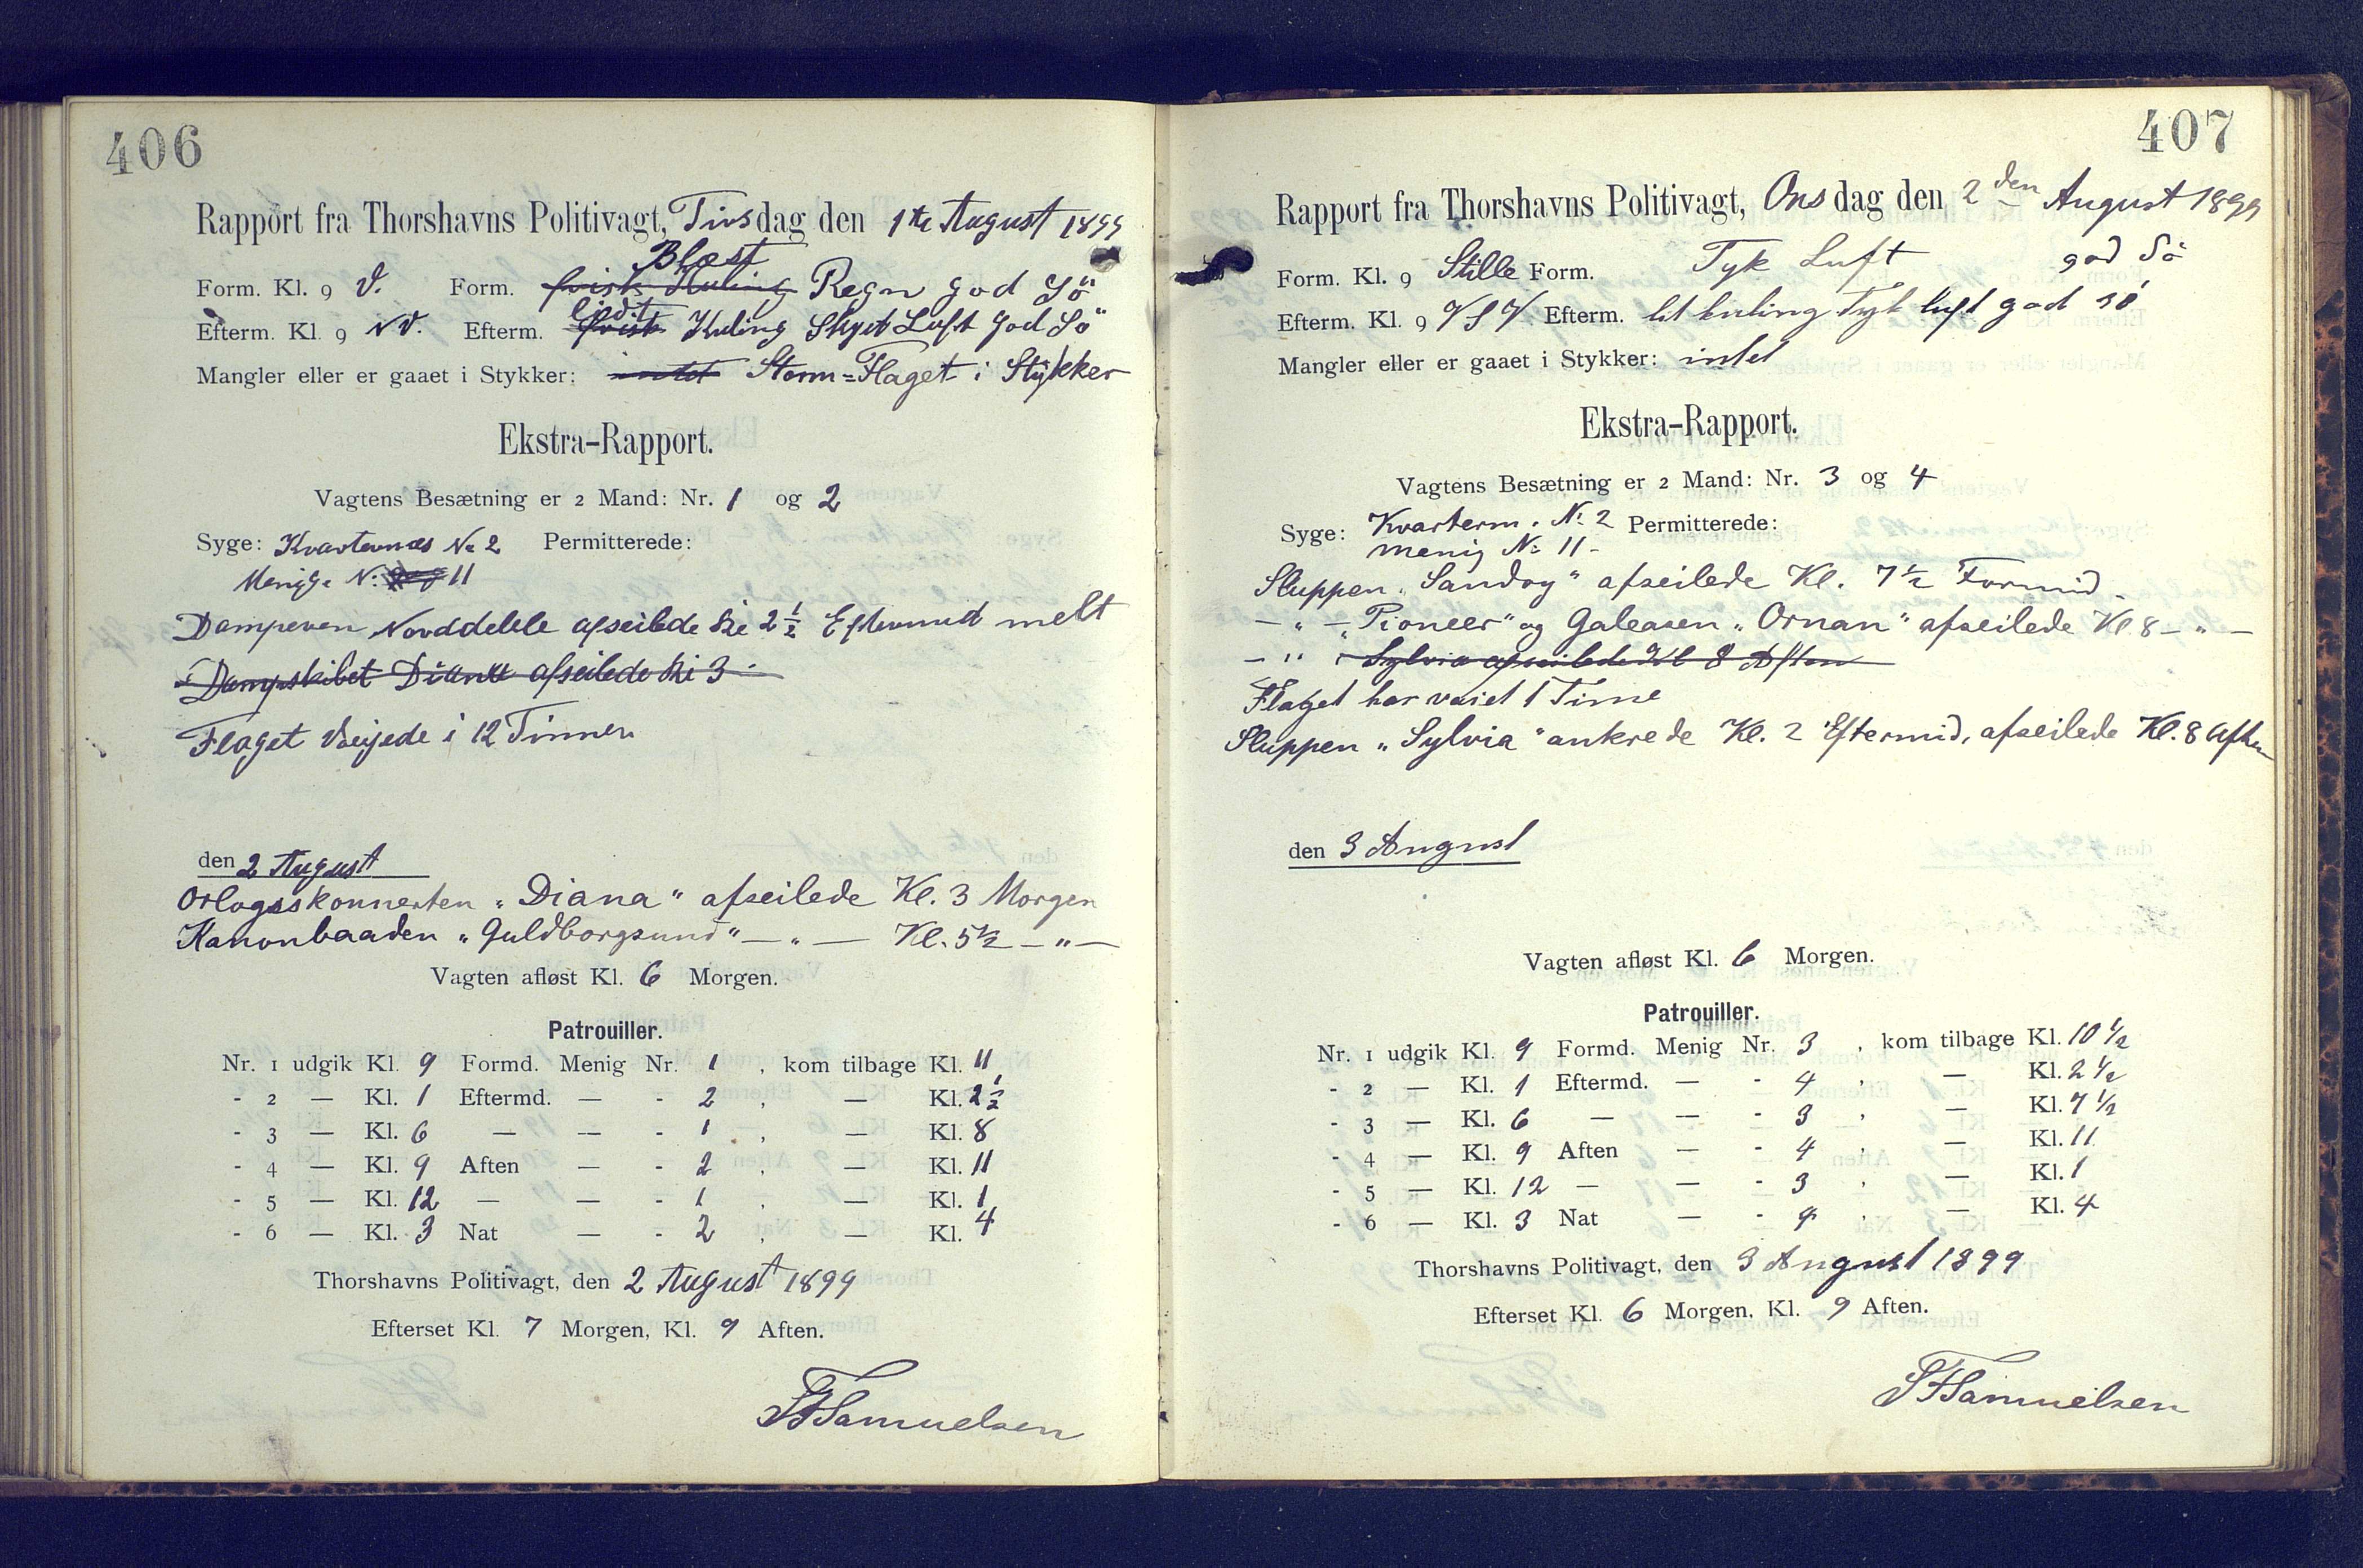 406
Rapport fra Thorshavns Politivagt, Tirsdag den 1ste August 1899
Blæst
Form. Kl. 9 V. Form. frisk Kuling Regn god Sö
lidt
Efterm. Kl. 9 NV. Efterm. frisk Kuling Skyet Luft god Sö
Mangler eller er gaaet i Stykker: intet Storm=Flaget i Stykker
Ekstra-Rapport.
Vagtens Besætning er 2 Mand: Nr. 1 og 2
Syge: No 2 Permitterede:
Menige No 11
Damperen afseilede Kl 2 1/2 Eftermid
Dampskibet Diana afseilede Kl 3
Flaget Veijede i 12 Timer
den 2 August
Orlogsskonnerten „Diana" afseilede Kl. 3 Morgen
Kanonbaaden „Guldborgsund" — „ — Kl. 5 1/2 — „ —
Vagten afløst Kl. 6 Morgen.
Patrouiller.
Nr. 1 udgik Kl. 9 Formd. Menig Nr. 1 , kom tilbage Kl. 11
- 2 — Kl. 1 Eftermd. — - 2 , — Kl. 2 1/2
- 3 — Kl. 6 — — - 1 , — Kl. 8
- 4 — Kl. 9 Aften — - 2 , — Kl. 11
- 5 — Kl. 12 — — - 1 , — Kl. 1
- 6 — Kl. 3 Nat — - 2 , — Kl. 4
Thorshavns Politivagt, den 2 August 1899
Efterset Kl. 7 Morgen, Kl. 9 Aften.
Samuelsen
407
Rapport fra Thorshavns Politivagt, Onsdag den 2den August 1899
Form. Kl. 9 Stille Form. Tyk Luft god Sö
Efterm. Kl. 9 VSV Efterm. let kuling Tyk luft god sö
Mangler eller er gaaet i Stykker: intet
Ekstra-Rapport.
Vagtens Besætning er 2 Mand: Nr. 3 og 4
Syge: Kvarterm. No 2 Permitterede:
menig No 11 -
Sluppen „Sandoy" afseilede Kl. 7 1/2 Formid.
— „ — „Pioneer" og Galeasen „Ornan" afseilede Kl 8 — „ —
— „ „ Sylvia afseilede Kl 8 Aften
Flaget har vaiet 1 Time
Sluppen „Sylvia" ankrede Kl. 2 Eftermid, afseilede Kl. 8 Aften
den 3 August
Vagten afløst Kl. 6 Morgen.
Patrouiller.
Nr. 1 udgik Kl. 9 Formd. Menig Nr. 3 , kom tilbage Kl. 10 1/2
- 2 — Kl. 1 Eftermd. — - 4 , — Kl. 2 1/2
- 3 — Kl. 6 — — - 3 , — Kl. 7 1/2
- 4 — Kl. 9 Aften — - 4 , — Kl. 11
- 5 — Kl. 12 — — - 3 , — Kl. 1
- 6 — Kl. 3 Nat — - 4 , — Kl. 4
Thorshavns Politivagt, den 3 August 1899
Efterset Kl. 6 Morgen, Kl. 9 Aften.
Samuelsen